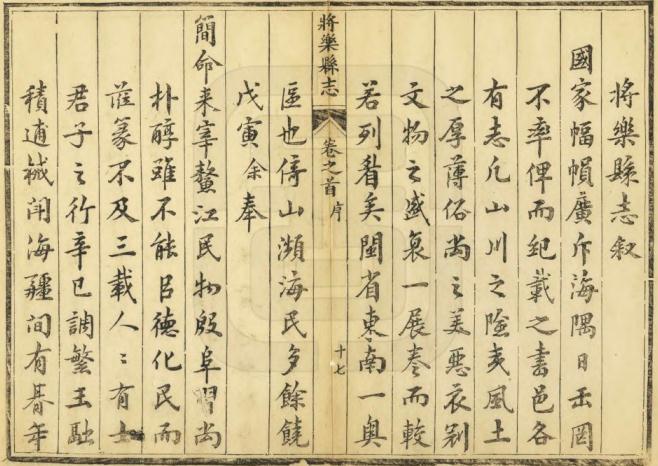 將樂縣志叙
國家幅幀廣斥海隅日出罔
不率俾而紀載之書邑各
有志凡山川之險夷風土
之厚薄俗尚之美惡衣冠
文物之盛衰一展卷而較
若列眉矣閩省東南一奥
將樂縣志
卷之首
序
十七
區也倚山瀕海民多餘饒
戊寅余奉
簡命来宰鰲江民物殷阜習尚
朴醇雖不能㠯德化民而
蒞篆不及三載人〻有士
君子之行辛巳調繁玉融
積逋械鬥海疆間有朞年